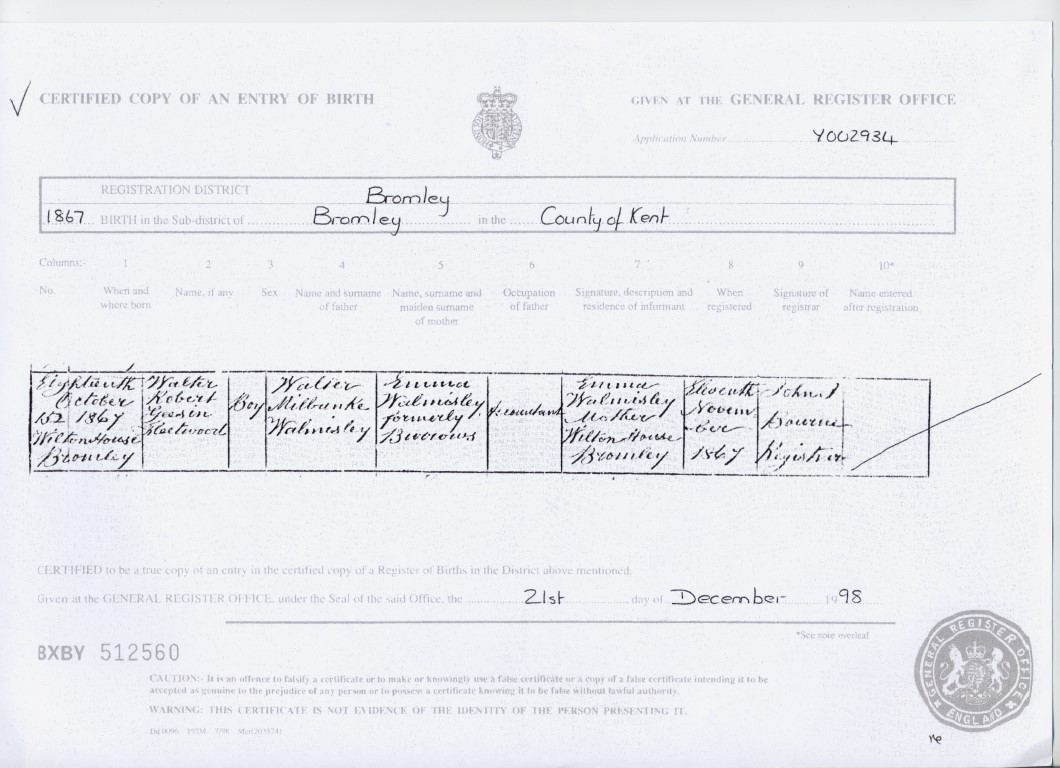 CERTIFIED COPY OF AN ENTRY OF BIRTH
GIVEN AT THE GENERAL REGISTER OFFICE
Application Number Y002934
REGISTRATION DISTRICT Bromley
1867 BIRTH in the Sub-district of Bromley in the County of Kent
Columns:- 1 2 3 4 5 6 7 8 9 10*
No. When and where born Name, if any Sex Name and surname of father Name, surname and maiden surname of mother Occupation of father Signature, description and residence of informant When registered Signature of registrar Name entered after registration
152 Eighteenth October 1867 Wilton House Bromley
Walter Robert Fleetwood
Boy
Walter Milbanke Walmisley
Emma Walmisley formerly Burrows
Accountant
Emma Walmisley Mother Wilton House Bromley
Eleventh November 1867
John Bourne Registrar
CERTIFIED to be a true copy of an entry in the certified copy of a Register of Births in the District above mentioned.
Given at the GENERAL REGISTER OFFICE, under the Seal of the said Office, the 21st day of December 1998
*See note overleaf
BXBY 512560
CAUTION:- It is an offence to falsify a certificate or to make or knowingly use a false certificate or a copy of a false certificate intending it to be
accepted as genuine to the prejudice of any person or to possess a certificate knowing it to be false without lawful authority.
WARNING: THIS CERTIFICATE IS NOT EVIDENCE OF THE IDENTITY OF THE PERSON PRESENTING IT.
GENERAL REGISTER OFFICE ENGLAND